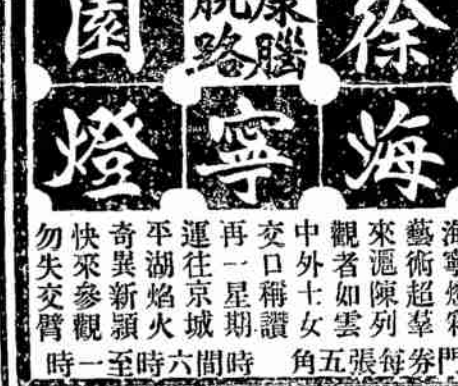 徐
康腦
脫路
園
海寧燈
海寧燈彩
藝術超羣
來滬陳列
觀者如雲
中外士女
交口稱讚
再一星期
運往京城
平湖焰火
奇異新穎
快來參觀
勿失交臂
門券每張五角
時間六時至一時